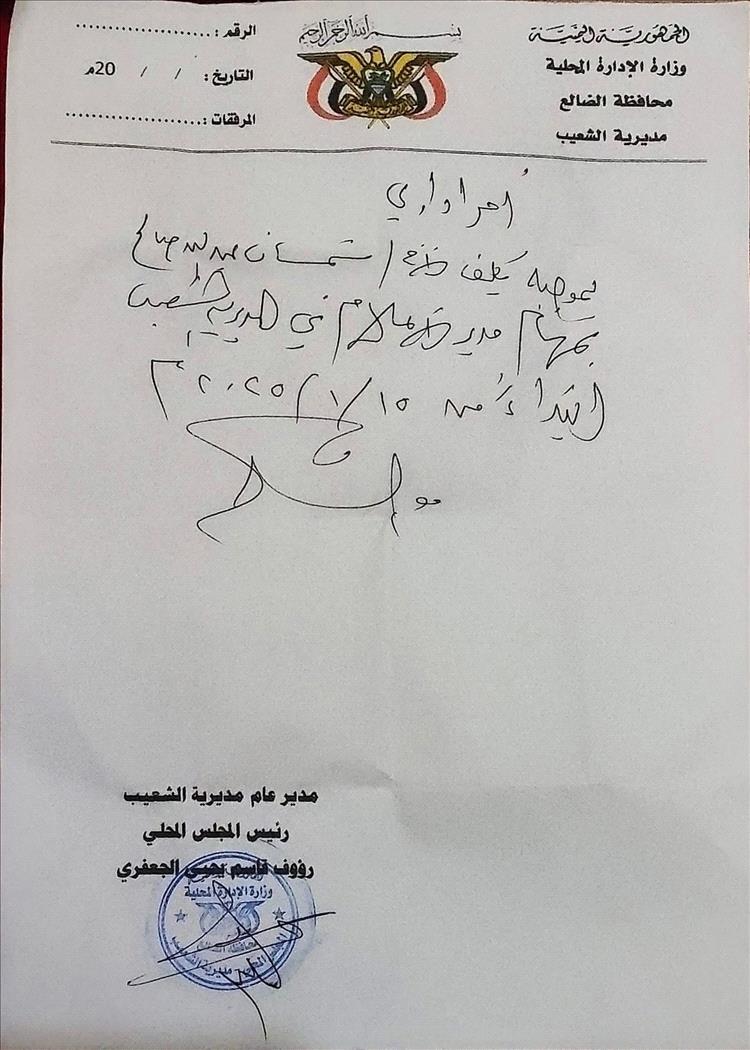 الجمهورية اليمنية
وزارة الإدارة المحلية
محافظة الضالع
مديرية الشعيب
بسم الله الرحمن الرحيم
الرقم : ......................
التاريخ : / / 20م
المرفقات : ......................
أمر اداري
بموجبه يكلف الاخ / شمسان صالح
بمهام مدير الاعلام في المديرية الشعيب
ابتداءً من ١٥ / ١ / ٢٠٢٥م
مدير عام مديرية الشعيب
رئيس المجلس المحلي
رؤوف قاسم يحيى الجعفري
وزارة الإدارة المحلية
محافظة الضالع
المجلس المحلي - مديرية الشعيب